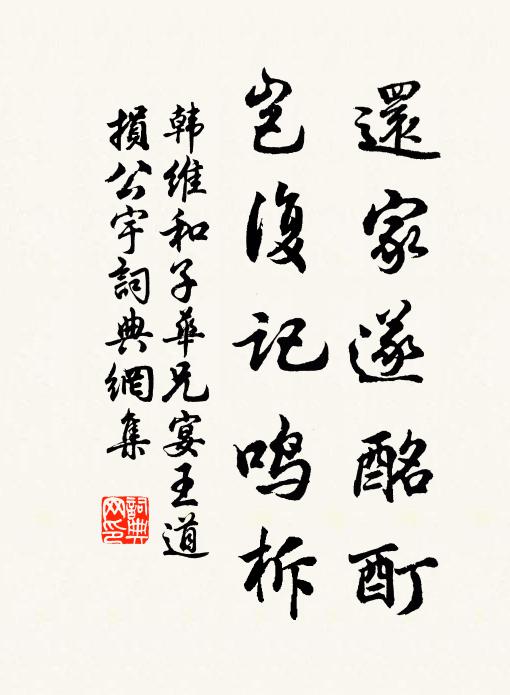 還家遂酩酊
岂復记鸣柝
韩維和子華兄宴王道
損公宇詞典網集
詞典网印